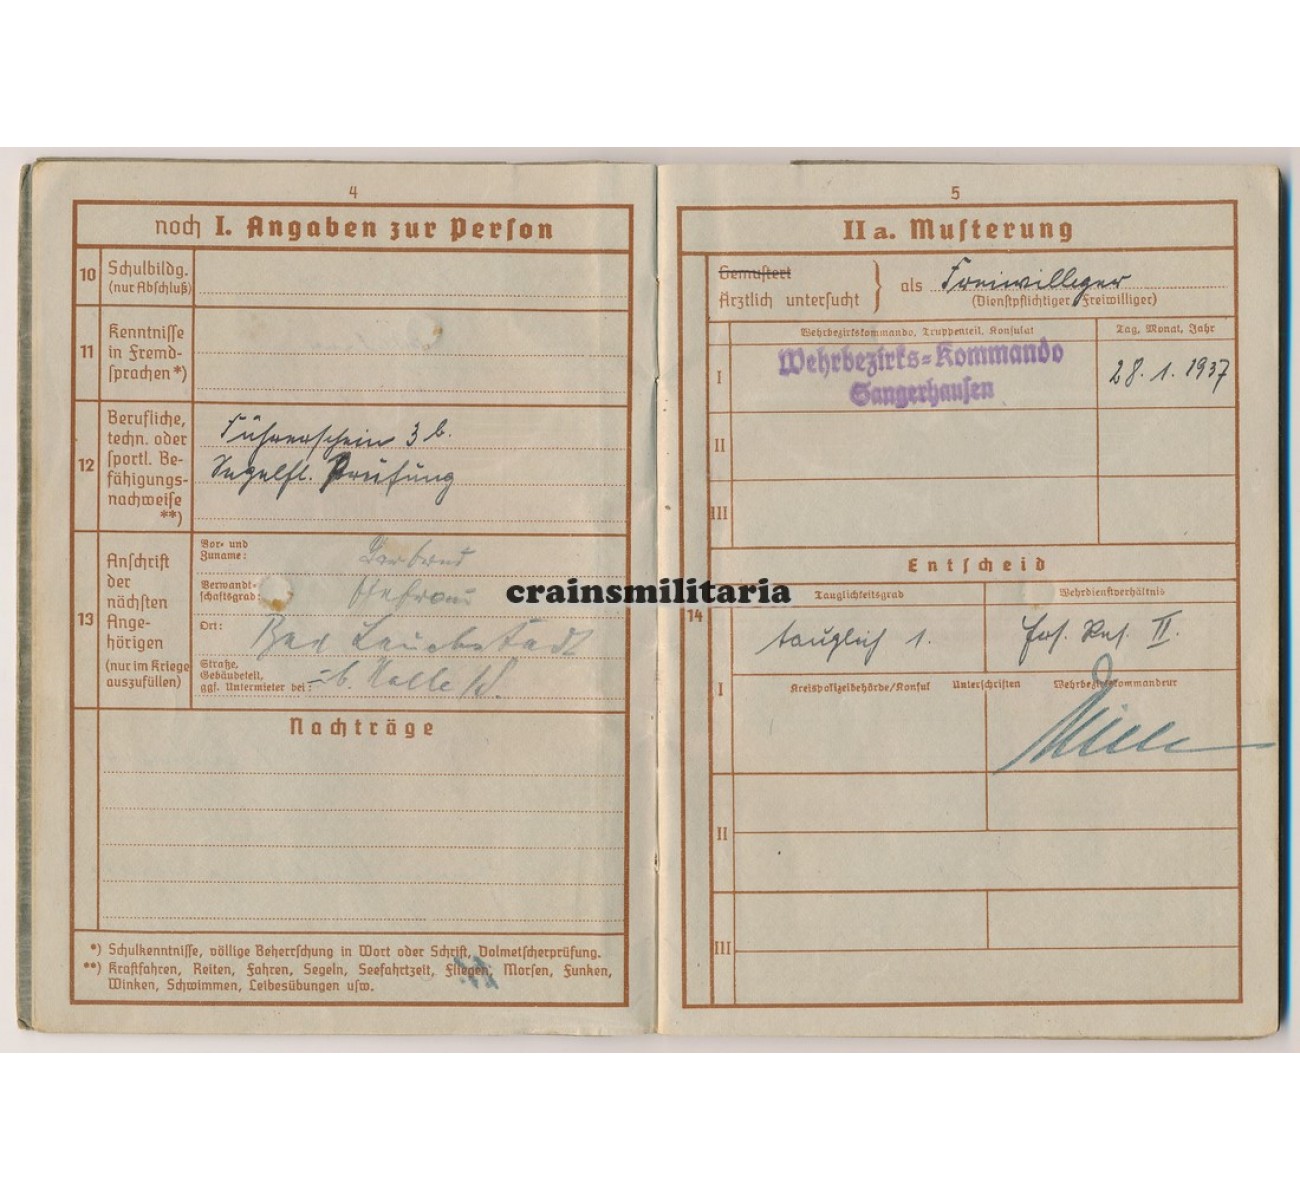 4
noch I. Angaben zur Person
10 Schulbildg.
(nur Abschluß)
11 Kenntnisse
in Fremd-
sprachen *)
12 Berufliche,
techn. oder
sportl. Be-
fähigungs-
nachweise
**)
Führerschein 3 b.
Segelfl. Prüfung
13 Anschrift
der
nächsten
Ange-
hörigen
(nur im Kriege
auszufüllen)
Vor- und
Zuname:
Verwandt-
schaftsgrad: Ehefrau
Ort: Bad Lauchstädt
Straße,
Gebäudeteil,
ggf. Untermieter bei: b. Halle /S.
Nachträge
*) Schulkenntnisse, völlige Beherrschung in Wort oder Schrift, Dolmetscherprüfung.
**) Kraftfahren, Reiten, Fahren, Segeln, Seefahrtzeit, Fliegen, Morsen, Funken,
Winken, Schwimmen, Leibesübungen usw.
5
II a. Musterung
Gemustert
Ärztlich untersucht } als Freiwilliger
(Dienstpflichtiger Freiwilliger)
Wehrbezirkskommando, Truppenteil, Konsulat Tag, Monat, Jahr
I Wehrbezirks-Kommando
Sangerhausen
28. 1. 1937
II
III
Entscheid
14 Tauglichkeitsgrad Wehrdienstverhältnis
tauglich 1. Ers. Res. II.
I Kreispolizeibehörde/Konsul Unterschriften Wehrbezirkskommandeur
II
III
crainsmilitaria